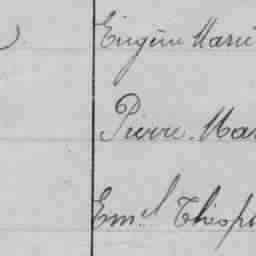 Eugène Marie
Pierre Mar
Em.el Théop